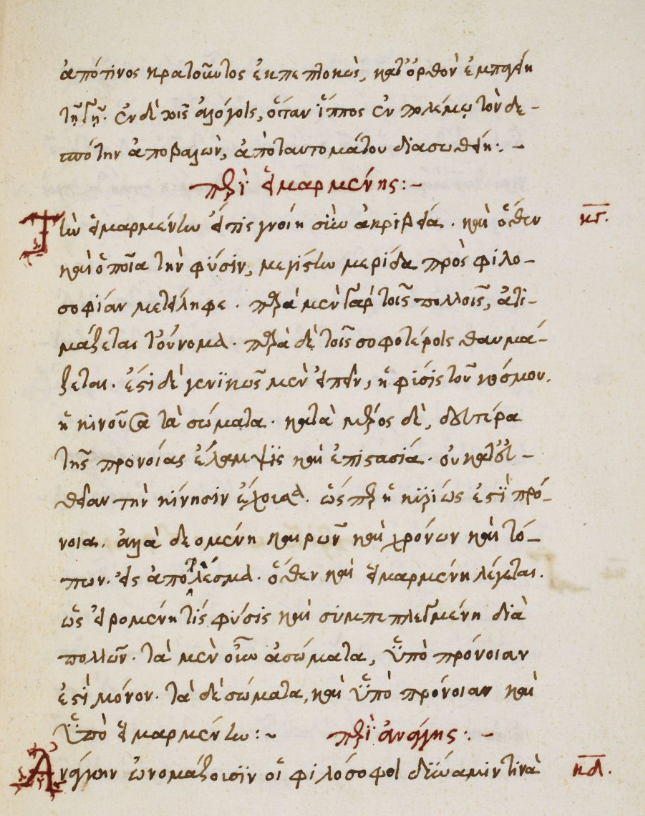 ἀπό τινος κρατοῦντος ἐκπεπτοκὼς, κατ' ὀρθὸν ἐμπαγῆ
τῆ γῆ. ἐν δὲ τοῖς ἀλόγοις, ὅταν ἵππος ἐν πολέμω τὸν δε-
σπότην ἀποβαλὼν, ἀπὸ ταυτομάτου διασωθῆ:. -
περὶ εἱμαρμένης:-
Τὴν εἱμαρμένην εἴ τις γνοίη σὺν ἀκριβεία. καὶ ὅθεν κγ.
καὶ ὁποῖα τὴν φύσιν, μεγίστην μερίδα πρὸς φιλο-
σοφίαν μετείληφε. παρὰ μὲν γὰρ τοῖς πολλοῖς, ἀτι-
μάζεται τοὔνομα. παρὰ δὲ τοῖς σοφοτέροις θαυμά-
ζεται. ἔστι δὲ γενϊκῶς μὲν εἰπεῖν, ἡ φύσις τοῦ κόσμου.
ἡ κινοῦσα τὰ σώματα. κατὰ μέρος δὲ, δευτέρα
τῆς προνοίας ἔλλαμψϊς καὶ ἐπιστασία. οὐ κατ' εὐ-
θεῖαν τὴν κίνησιν ἔχουσα. ὥσπερ ἡ κυρίως ἐστὶ πρό-
νοια. ἀλλὰ δεομένη καιρῶν καὶ χρόνων καὶ τό-
πων. εἰς ἀποτέλεσμα. ὅθεν καὶ εἱμαρμένη λέγεται.
ὡς εἰρομένη τίς φύσις καὶ συμπεπλεγμένη διὰ
πολλῶν. τὰ μὲν οὖν ἀσώματα, ὑπὸ πρόνοιαν
ἐστὶ μόνον. τὰ δὲ σώματα, καὶ ὑπὸ πρόνοιαν καὶ
ὑπὸ εἱμαρμένην:~ περὶ ἀνάγκης. -
Ἀνάγκην ὠνομάζουσιν οἱ φιλόσοφοι δύναμιν τινὰ κδ.